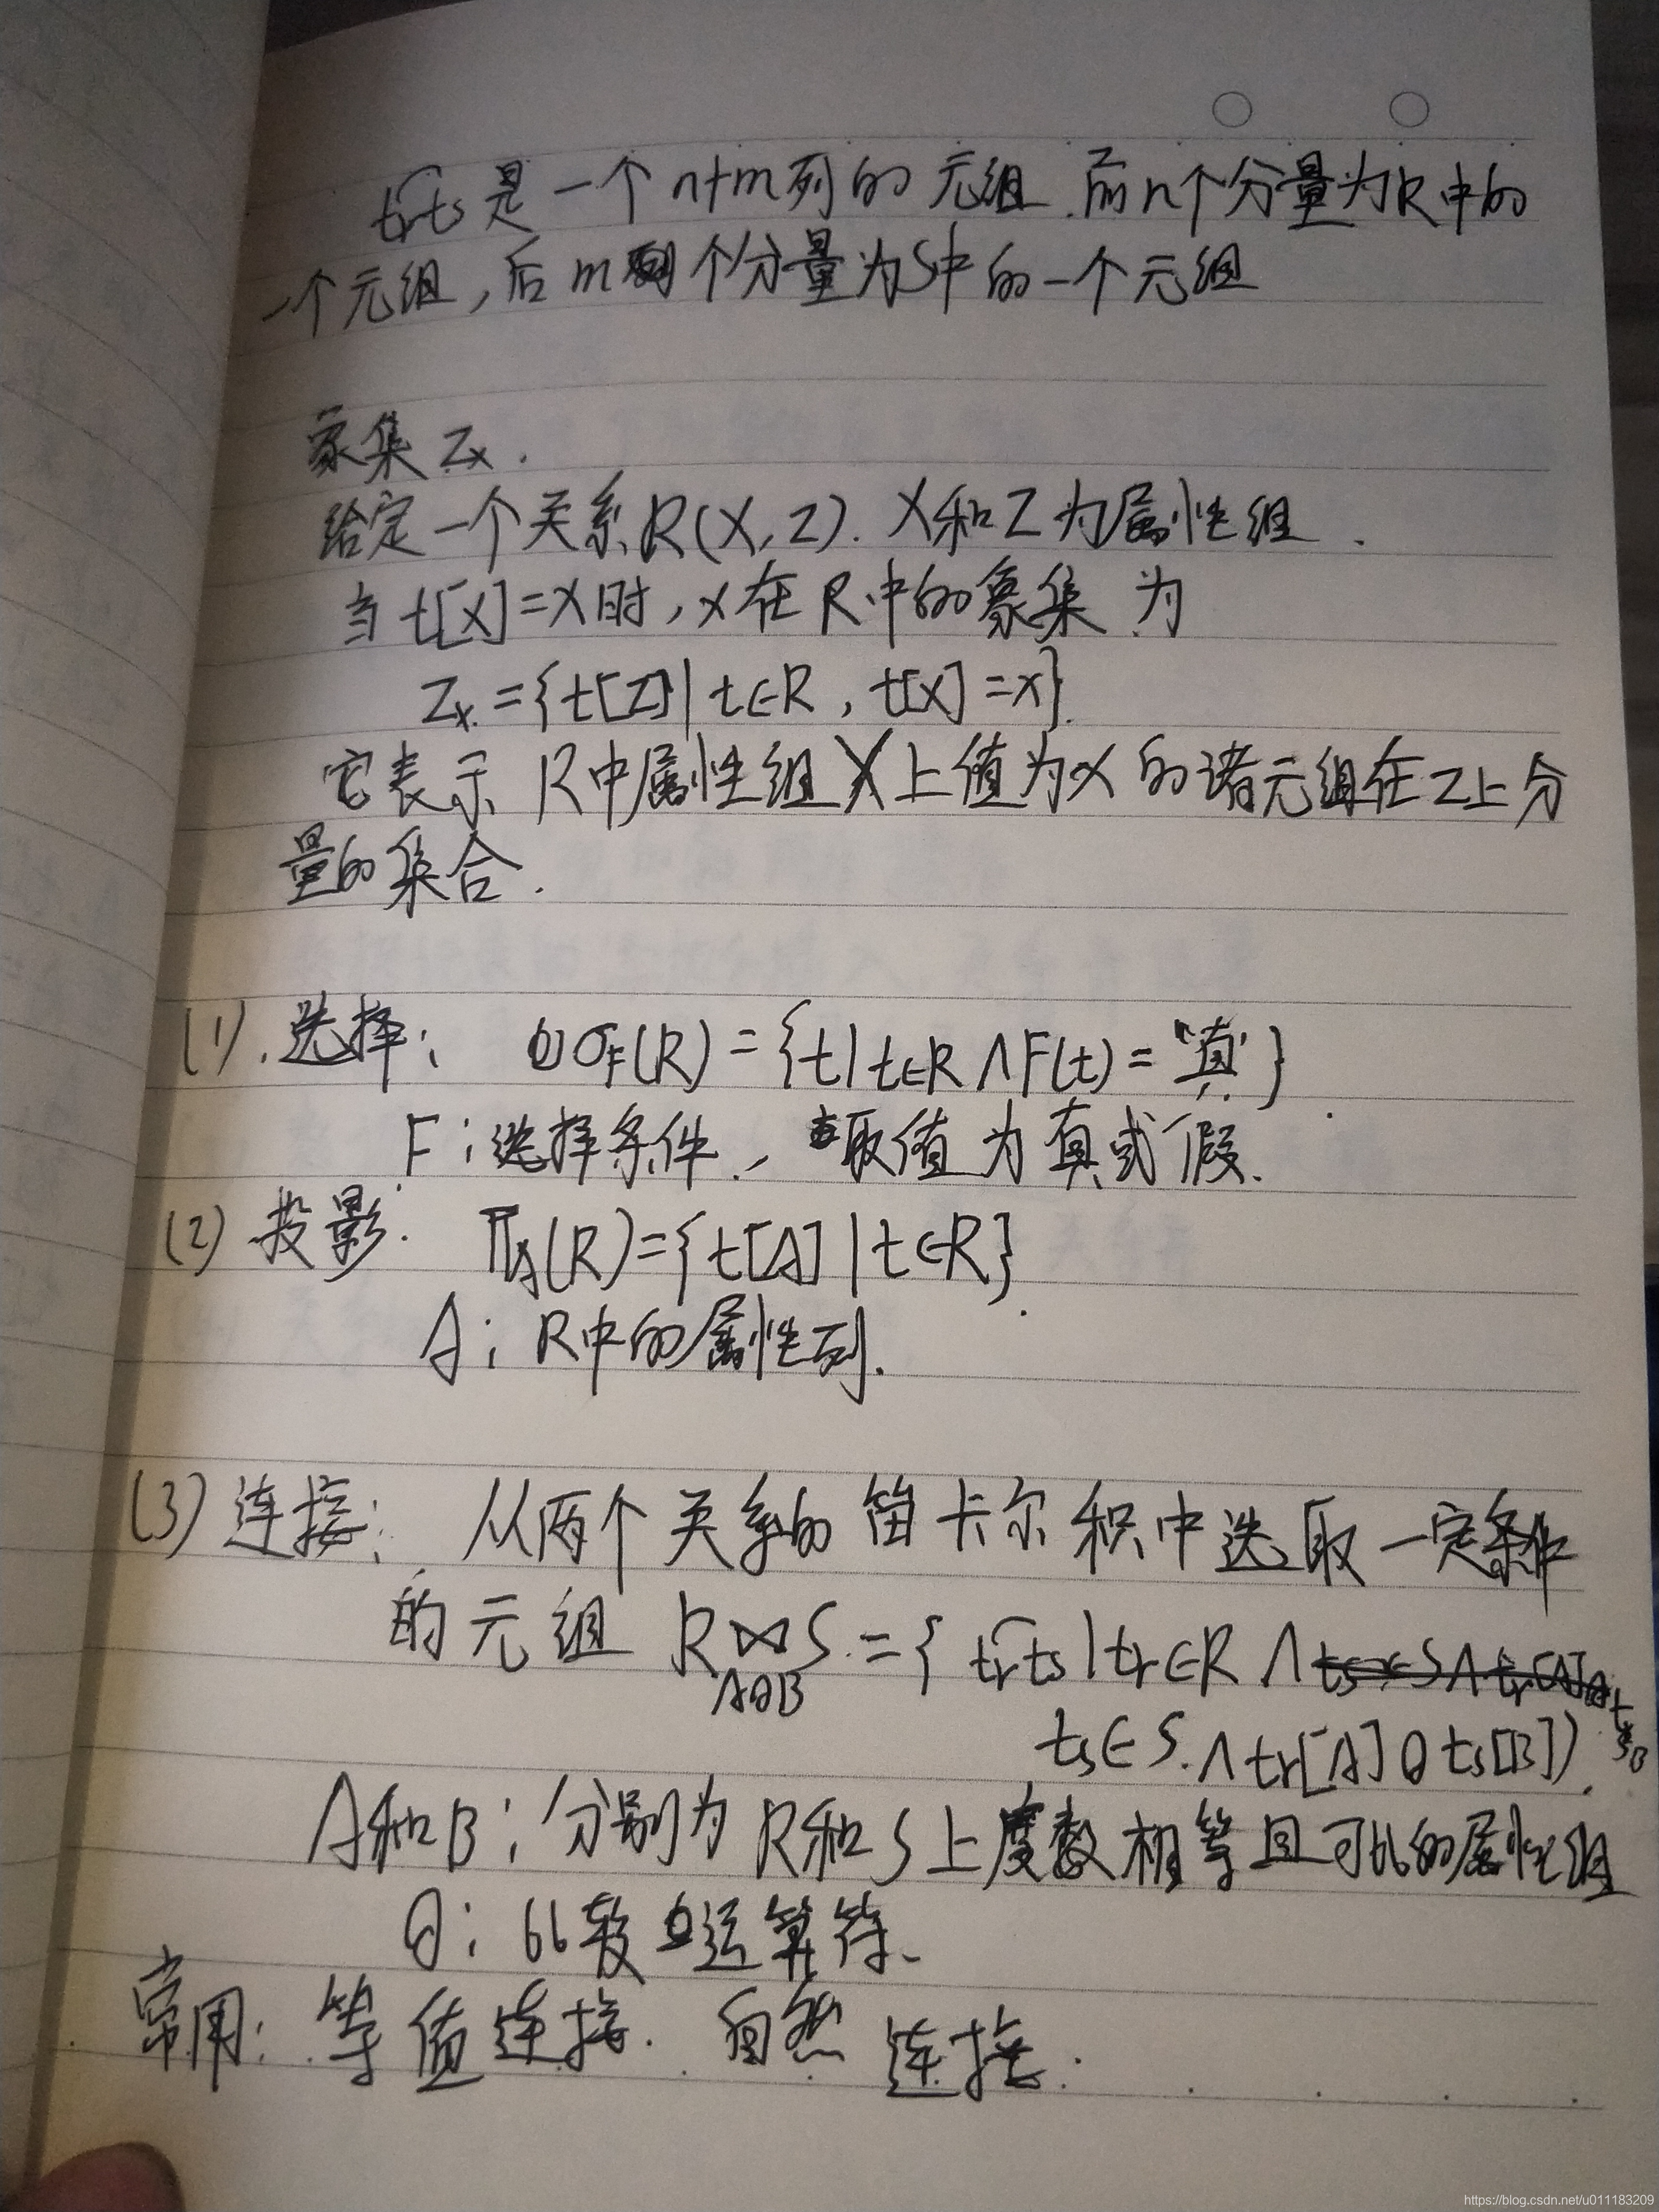 t͡rts是一个n+m列的元组.而n个分量为R中的
一个元组,后m个分量为S中的一个元组
象集Zx.
给定一个关系R(X,Z).X和Z为属性组.
当t[X]=x时,x在R中的象集为
Zx={t[Z]|t∈R,t[X]=x}.
它表示R中属性组X上值为x的诸元组在Z上分
量的集合.
(1).选择: σF(R)={t|t∈R∧F(t)="真"}
F:选择条件.,取值为真或假.
(2)投影: ΠA(R)={t[A]|t∈R}.
A:R中的属性列.
(3)连接: 从两个关系的笛卡尔积中选取一定条件
的元组 R⋈S.={t͡rts|tr∈R∧
AθB
ts∈S.∧tr[A]θts[B]).
A和B:分别为R和S上度数相等且可比的属性组
θ:比较运算符.
常用:等值连接.自然连接.
https://blog.csdn.net/u011183209